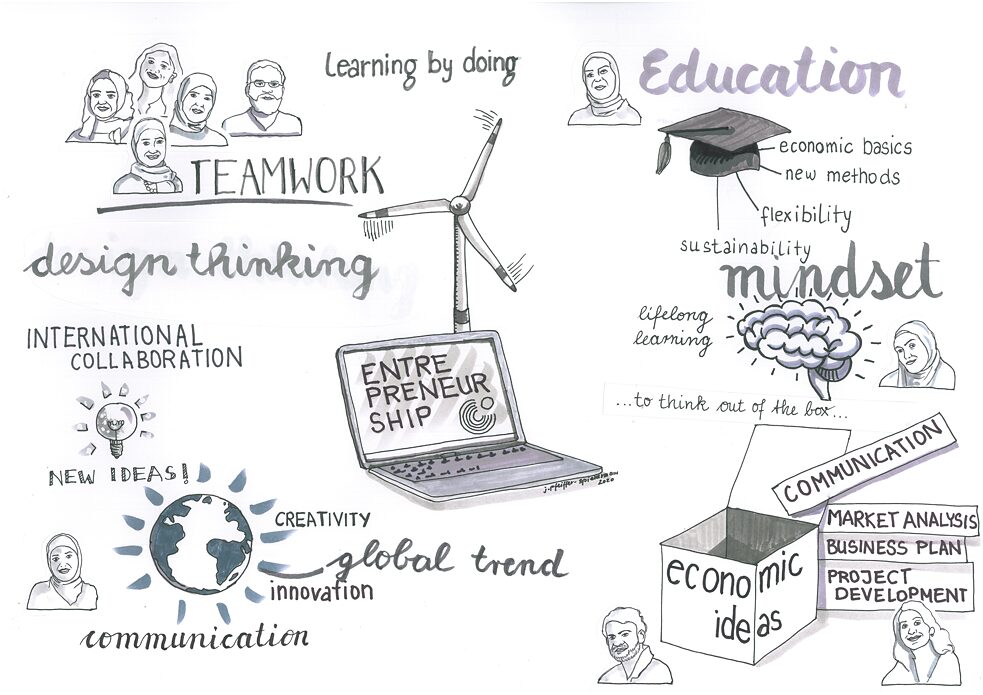 Learning by doing
TEAMWORK
design thinking
INTERNATIONAL
COLLABORATION
NEW IDEAS!
CREATIVITY
global trend
innovation
communication
ENTRE
PRENEUR
SHIP
2020
Education
economic basics
new methods
flexibility
sustainability
mindset
lifelong
learning
...to think out of the box...
COMMUNICATION
MARKET ANALYSIS
BUSINESS PLAN
PROJECT
DEVELOPMENT
economic
ideas